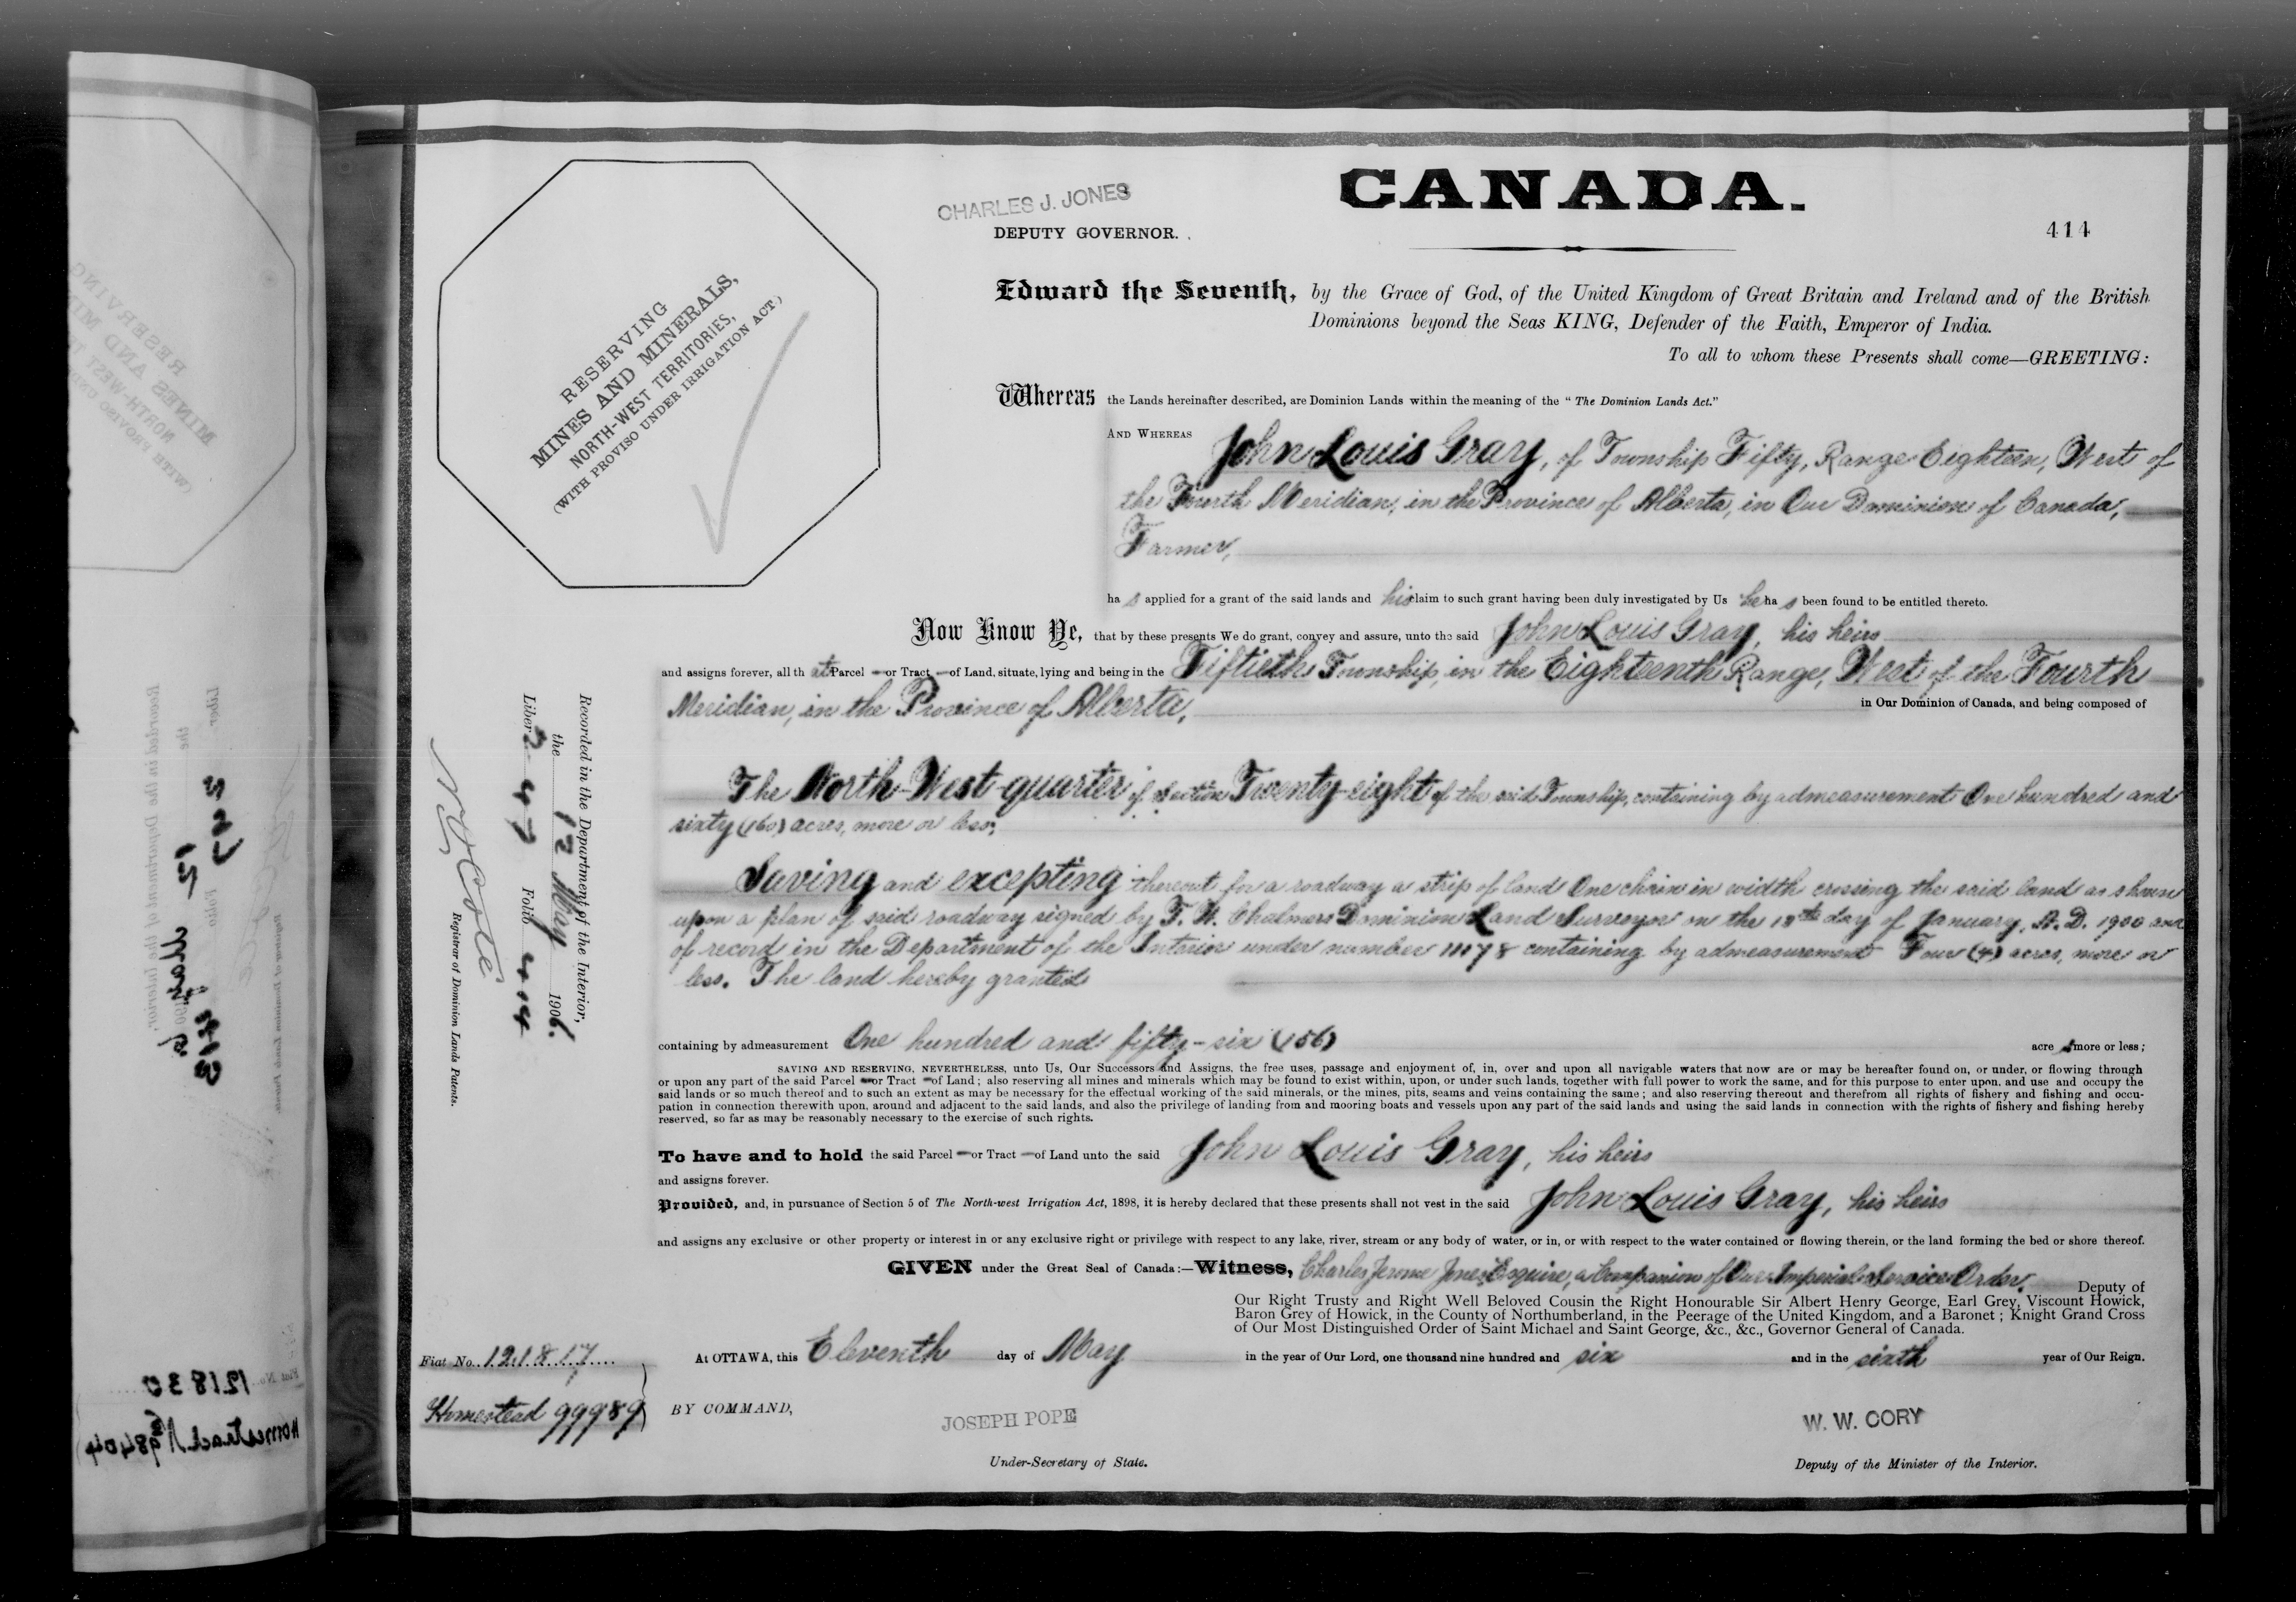 CANADA.
CHARLES J. JONES
DEPUTY GOVERNOR.
414
RESERVING
MINES AND MINERALS,
NORTH-WEST TERRITORIES,
(WITH PROVISO UNDER IRRIGATION ACT.)
Edward the Seventh, by the Grace of God, of the United Kingdom of Great Britain and Ireland and of the British
Dominions beyond the Seas KING, Defender of the Faith, Emperor of India.
To all to whom these Presents shall come—GREETING:
Whereas the Lands hereinafter described, are Dominion Lands within the meaning of the " The Dominion Lands Act."
AND WHEREAS John Louis Gray, of Township Fifty, Range Eighteen, West of
the Fourth Meridian, in the Province of Alberta, in Our Dominion of Canada,
Farmer,
ha s applied for a grant of the said lands and his claim to such grant having been duly investigated by Us he ha s been found to be entitled thereto.
Now Know Ye, that by these presents We do grant, convey and assure, unto the said John Louis Gray, his heirs
and assigns forever, all th at Parcel — or Tract — of Land, situate, lying and being in the Fiftieth Township, in the Eighteenth Range, West of the Fourth
Meridian, in the Province of Alberta, in Our Dominion of Canada, and being composed of
The North-West-quarter of Section Twenty-eight of the said Township, containing by admeasurement One hundred and
sixty (160) acres, more or less;
Saving and excepting thereout for a roadway a strip of land One chain in width crossing the said land as shown
upon a plan of said roadway signed by T. W. Chalmers Dominion Land Surveyor on the 18th day of January, A.D. 1900 and
of record in the Department of the Interior under number containing by admeasurement Four (4) acres, more or
less. The land hereby granted
containing by admeasurement One hundred and fifty-six (156) acre s more or less;
SAVING AND RESERVING, NEVERTHELESS, unto Us, Our Successors and Assigns, the free uses, passage and enjoyment of, in, over and upon all navigable waters that now are or may be hereafter found on, or under, or flowing through
or upon any part of the said Parcel — or Tract — of Land; also reserving all mines and minerals which may be found to exist within, upon, or under such lands, together with full power to work the same, and for this purpose to enter upon, and use and occupy the
said lands or so much thereof and to such an extent as may be necessary for the effectual working of the said minerals, or the mines, pits, seams and veins containing the same; and also reserving thereout and therefrom all rights of fishery and fishing and occu-
pation in connection therewith upon, around and adjacent to the said lands, and also the privilege of landing from and mooring boats and vessels upon any part of the said lands and using the said lands in connection with the rights of fishery and fishing hereby
reserved, so far as may be reasonably necessary to the exercise of such rights.
To have and to hold the said Parcel — or Tract — of Land unto the said John Louis Gray, his heirs
and assigns forever.
Provided, and, in pursuance of Section 5 of The North-west Irrigation Act, 1898, it is hereby declared that these presents shall not vest in the said John Louis Gray, his heirs
and assigns any exclusive or other property or interest in or any exclusive right or privilege with respect to any lake, river, stream or any body of water, or in, or with respect to the water contained or flowing therein, or the land forming the bed or shore thereof.
GIVEN under the Great Seal of Canada:—Witness, Charles Jerome Jones Esquire, a Companion of Our Imperial Service Order, Deputy of
Our Right Trusty and Right Well Beloved Cousin the Right Honourable Sir Albert Henry George, Earl Grey, Viscount Howick,
Baron Grey of Howick, in the County of Northumberland, in the Peerage of the United Kingdom, and a Baronet; Knight Grand Cross
of Our Most Distinguished Order of Saint Michael and Saint George, &c., &c., Governor General of Canada.
At OTTAWA, this Eleventh day of May in the year of Our Lord, one thousand nine hundred and six and in the sixth year of Our Reign.
BY COMMAND,
JOSEPH POPE
Under-Secretary of State.
W. W. CORY
Deputy of the Minister of the Interior.
Recorded in the Department of the Interior,
the 12 May 1906.
Liber 247 Folio 414
Registrar of Dominion Lands Patents.
Fiat No. 121817
Homestead 99989
121830